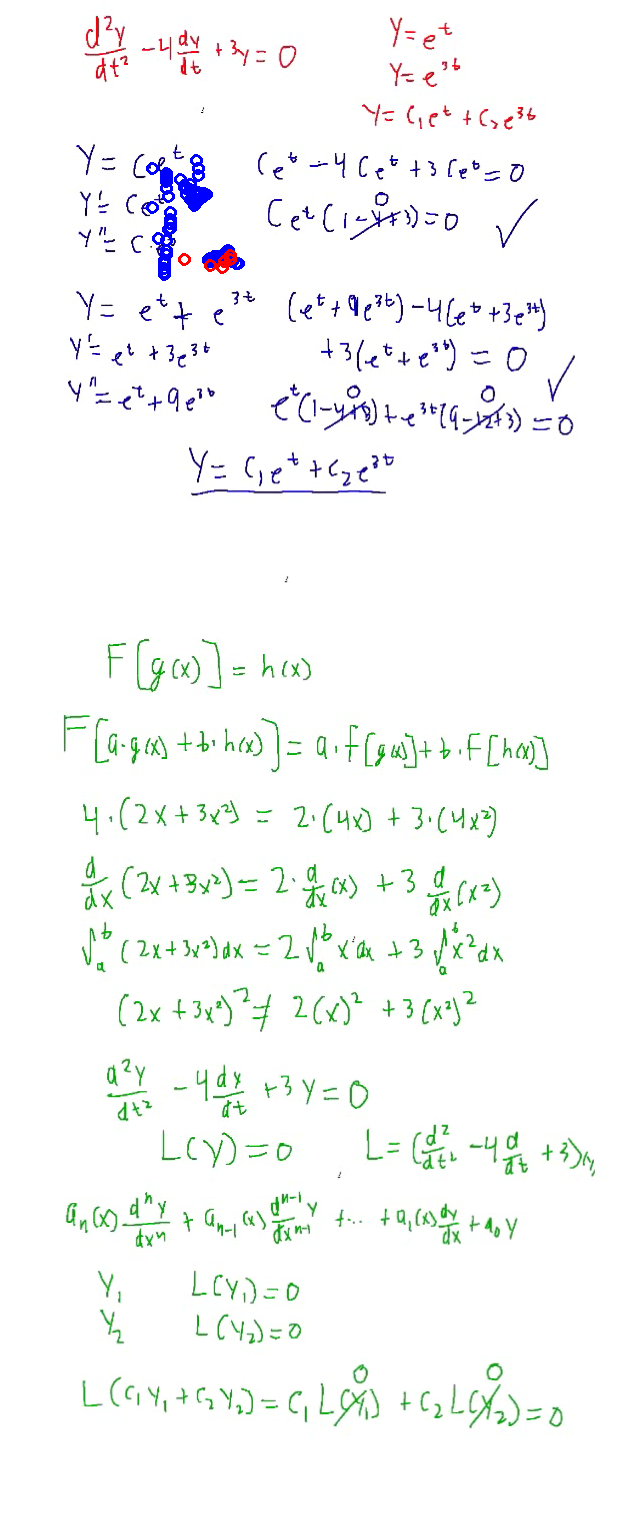 d²y/dt² - 4 dy/dt + 3y = 0
Y = e^t
Y = e^3t
Y = C₁e^t + C₂e^3t
Y = Ce^t
Y' = Ce^t
Y" = C
Ce^t - 4Ce^t + 3Ce^t = 0
Ce^t (1-4+3) = 0 ✓
0
Y = e^t + e^3t
Y' = e^t + 3e^3t
Y" = e^t + 9e^3t
(e^t + 9e^3t) - 4(e^t + 3e^3t)
+3(e^t + e^3t) = 0 ✓
0 0
e^t(1-4+3) + e^3t(9-12+3) = 0
Y = C₁e^t + C₂e^3t
F[g(x)] = h(x)
F[a·g(x) + b·h(x)] = a·F[g(x)] + b·F[h(x)]
4·(2x + 3x²) = 2·(4x) + 3·(4x²)
d/dx (2x + 3x²) = 2·d/dx (x) + 3 d/dx (x²)
∫ₐᵇ (2x + 3x²) dx = 2∫ₐᵇ x dx + 3∫ₐᵇ x² dx
(2x + 3x²)² ≠ 2(x)² + 3(x²)²
d²y/dt² - 4 dy/dt + 3y = 0
L(y) = 0 L = (d²/dt² - 4 d/dt + 3)
aₙ(x) dⁿy/dxⁿ + aₙ₋₁(x) dⁿ⁻¹y/dxⁿ⁻¹ + ... + a₁(x) dy/dx + a₀y
Y₁ L(Y₁) = 0
Y₂ L(Y₂) = 0
0 0
L(C₁Y₁ + C₂Y₂) = C₁L(Y₁) + C₂L(Y₂) = 0